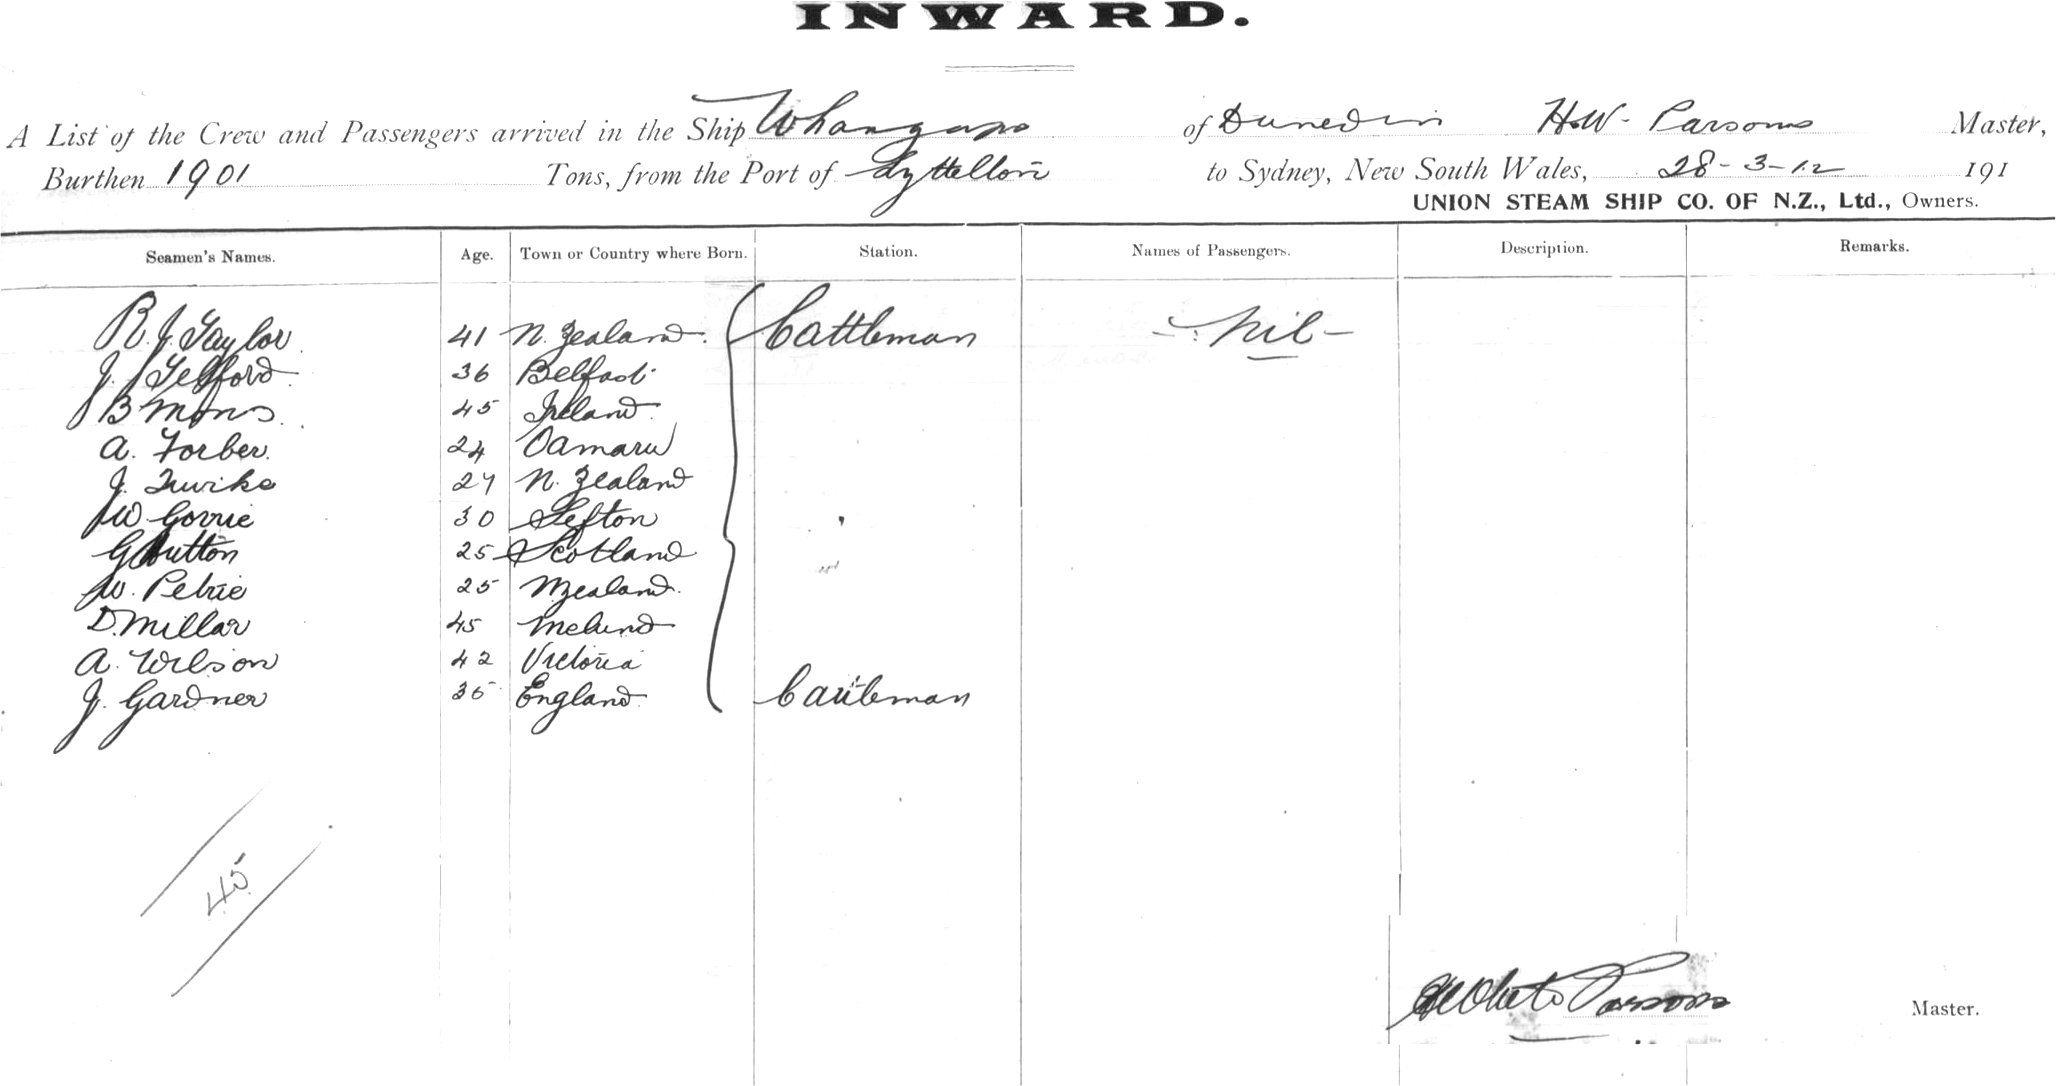 INWARD.
A List of the Crew and Passengers arrived in the Ship Whangape of Dunedin H.W. Parsons Master,
Burthen 1901 Tons, from the Port of Lyttelton to Sydney, New South Wales, 28-3-12 191
UNION STEAM SHIP CO. OF N.Z., Ltd., Owners.
Seamen's Names. Age. Town or Country where Born. Station. Names of Passengers. Description. Remarks.
R. J. Taylor 41 N. Zealand. Cattleman - Nil -
J. Telford 36 Belfast
J B 45 Ireland
A. Forber. 24 Oamaru
J. 27 N. Zealand
W. Gorrie 30 Sefton
G Hutton 25 Scotland
W. Petrie 25 N. Zealand.
D. Millar 45
A. Wilson 42 Victoria
J. Gardner 35 England Cattleman
45
Parsons Master.